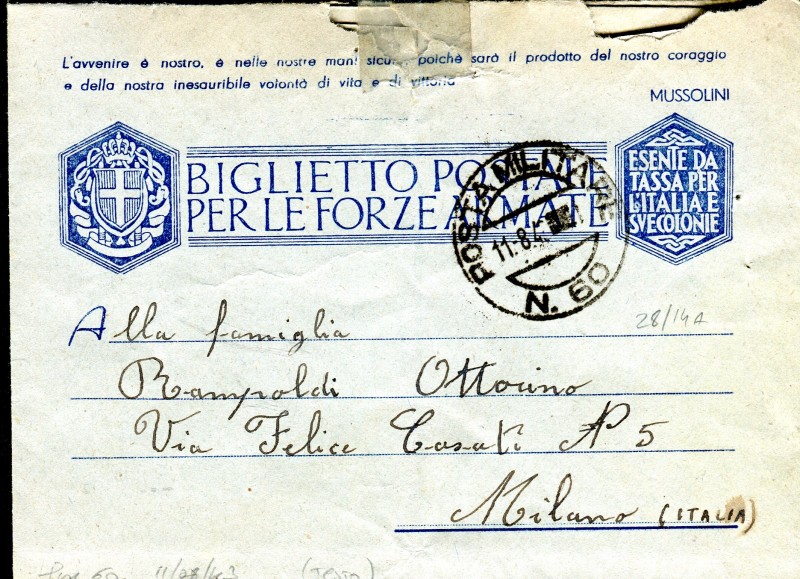 L'avvenire è nostro, è nelle nostre mani sicure, poichè sarà il prodotto del nostro coraggio
e della nostra inesauribile volontà di vita e di vittoria
MUSSOLINI
BIGLIETTO POSTALE
PER LE FORZE ARMATE
ESENTE DA
TASSA PER
L'ITALIA E
SVE COLONIE
POSTA MILITARE
11.8.4
N. 60
28/14A
Alla famiglia
Rampoldi Ottorino
Via Felice Casati N 5
Milano (ITALIA)
60